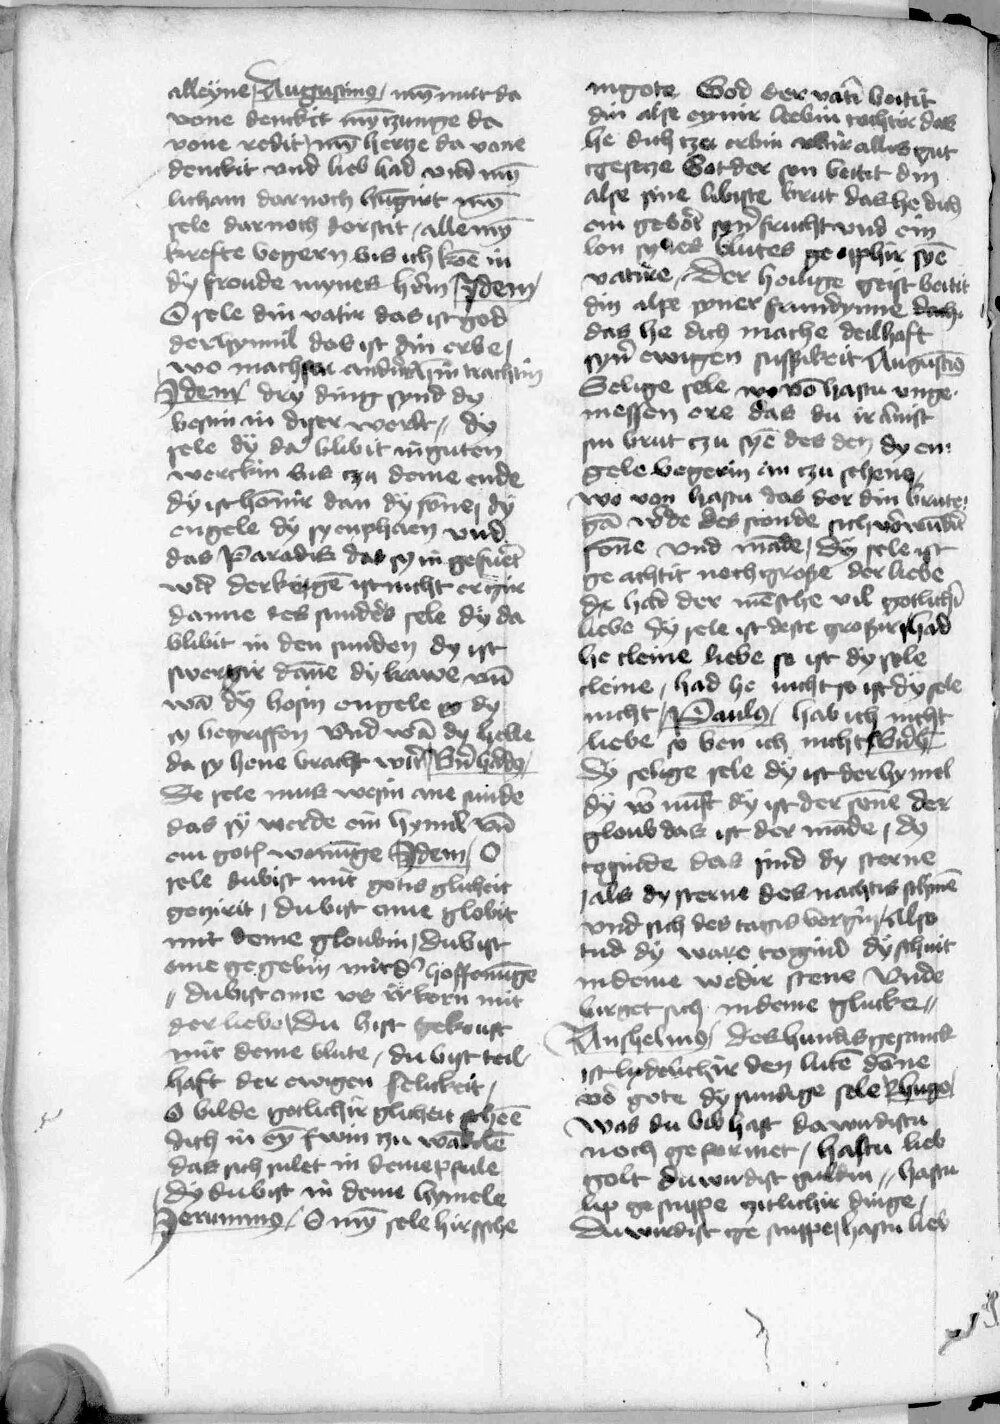 alleyne / Augustinus / myn mut da
vone denckit myn czunge da
vone redit / myn hercze da vone
denckit vnd lieb had vnd myn
licham dornoch hungirt myn
sele darnoch dorstit / alle myn
krefte begern bis ich kome in
dy froude mynes hern / Idem /
O sele din vatir das ist god
der hymil das ist din erbe /
wo machstu andirs in trachtin
Idem / dry ding synd dy
besin in diser werlt // dy
sele dy da blibit in guten
werckin bis czu deme ende
dy ist schonir dan dy sonne / dy
engele dy sy enphaen vnd
das Paradis das sy in gefurt
wirt der keigen ist nicht ergir
danne des sunders sele dy da
blibit in den sunden dy ist
swerczir danne dy krawe vnd
wan dy bosin engele dy
sy begriffen vnd wan dy helle
da sy hene bracht wirt / Bernhardus /
De sele mus wesin ane sunde
das sy werde ein hymil vnd
ein gotis wonunge / Idem / O
sele du bist mit gotis glicheit
geczirit / du bist eme globit
mit deme gloubin / du bist
eme gegebin mit der hoffenunge
// du bist eme vs irkorn mit
der liebe / Du bist gekouft
mit deme blute / du bist teil
haft der ewigen selickeit /
O bilde gotlichir glicheit scheme
dich in eyn swin czu wandeln
das sich sulet in deme pfule
/ dy du bist in deme hymele
Jeronimus / O myn sele hirssche
in gote God der vatir beitit
din alse eynir liebin tochtir das
he dich czu erbin vbir alles gut
gesecze Got der son beitit din
alse sine libiste brut das he dich
ein geber syner frucht vnd ein
lon synes blutes ge opphir syme
vatire / Der heilige geist beitit
din alse syner frundynne
das he dich mache deilhaft
syner ewigen sussikeit Augustinus
Selige sele wo von hastu vnge
messen ere das du ir
sin brut czu syn des den dy en
gele begerin an czu sehene /
wo von hastu das der din brute
gam werde des stonde sich vorwundirt
sonne vnd mande / Dy sele ist
ge achtit noch grosse der liebe
hat der mensche vil gotlichir
liebe dy sele ist deste grossir / had
he cleine liebe so ist dy sele
cleine / had he nicht so ist dy sele
nicht / Paulus / hab ich nicht
liebe so ben ich nicht / Bernhardus
Dy selige sele dy ist der hymel
dy vornunft dy ist der sonne der
gloub das ist der mande / dy
togunde das sind dy sterne
/ als dy sterne des nachtis schinen
vnd sich des tagis bergin / also
tud dy ware togund dy schint
in deme wedir stene vnde
birget sich in deme glucke //
Anshelmus / des hundes gesanck
ist lydelichir den luten danne
vor gote dy sundige sele / Hugo /
Was du lib hast do wirdistu
noch geformet / hastu lieb
golt du wirdist guldin // hastu
lip gestuppe czitlichir dinge /
du wirdist czu stuppe / hastu lieb